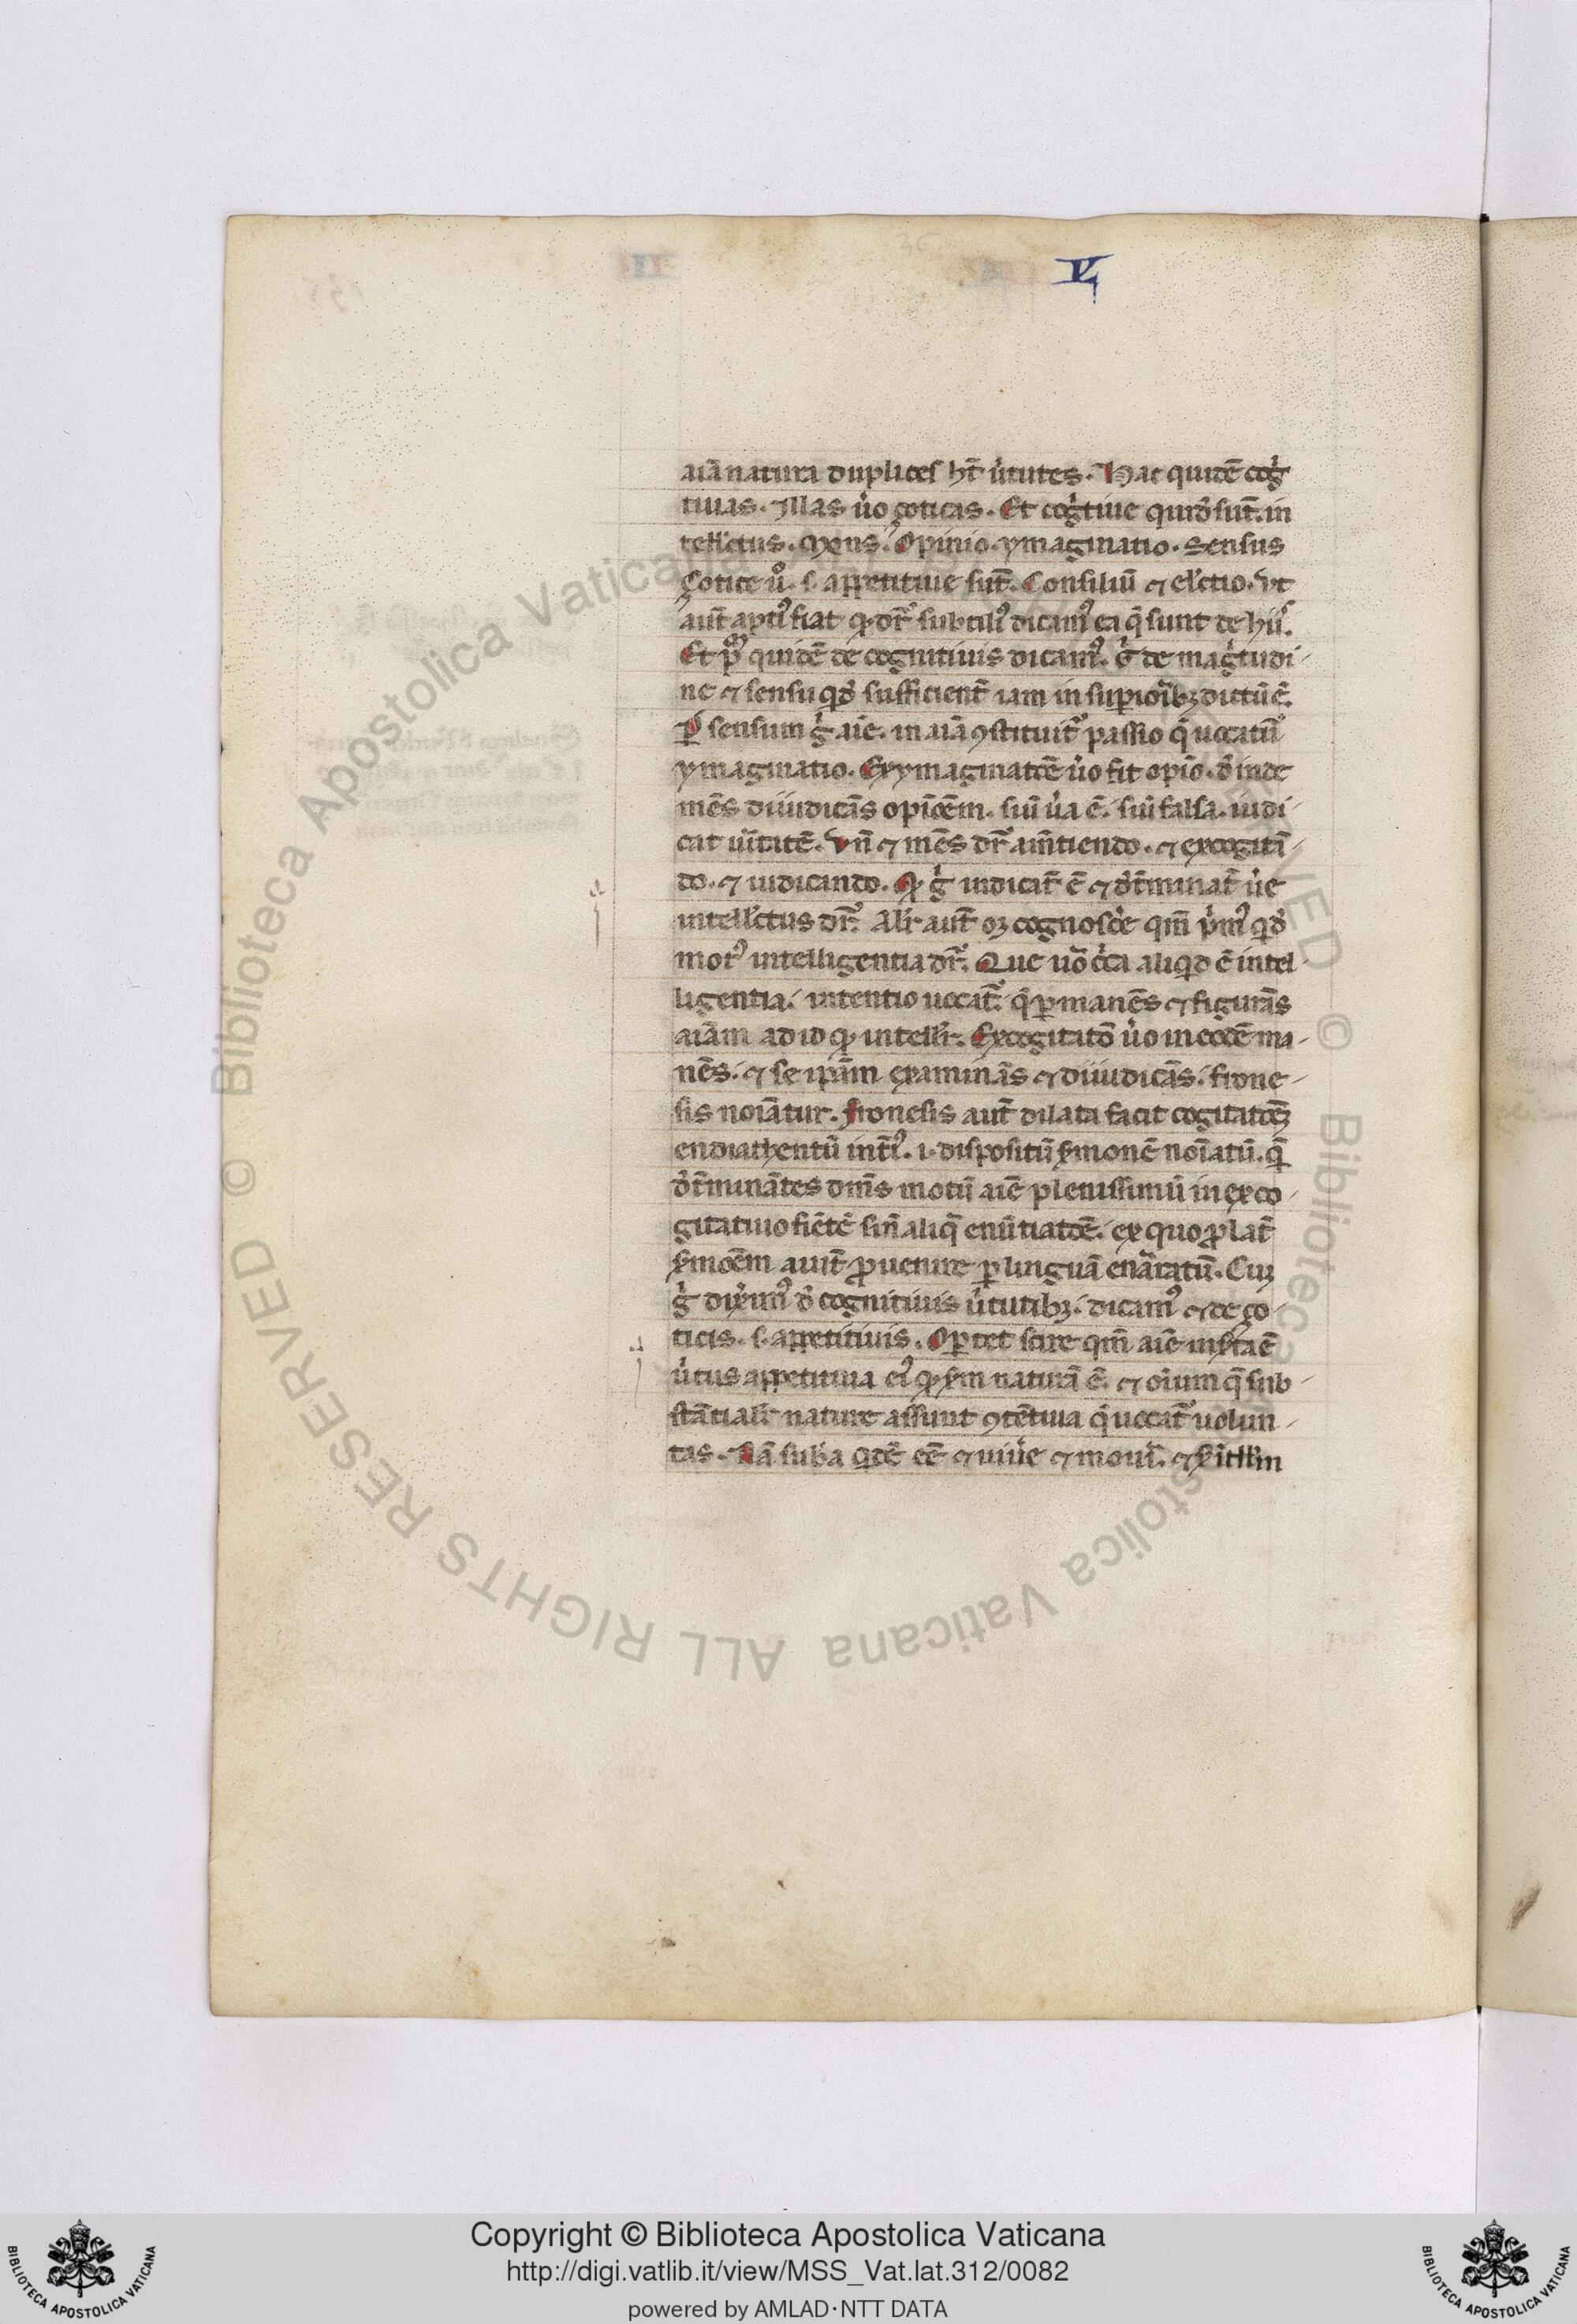 V
aiā natura duplices hn̄t u̓tutes. Hac quidē cog̓
tiuas. Illas u̓o çoticas. Et cog̓tiue quid̓ sūt. in
tell̓ctus. Mens. Opinio. ymaginatio. Sensus
Çotice u̓o. s. appetitiue sūt. Consiliū ⁊ el̓ctio. Vt
aut̄ aptiꝰ fiat qđ dr̄ subtiliꝰ dicamꝰ ea q̄ sunt de hiis.
Et pͥmo quidē de cognitiuis dicamꝰ. s̓ de mag̓tudi
ne ⁊ sensu qđ sufficient̄ iam in supioribꝫ dictū ē.
ꝑ sensum g̓ aīe. in aīa ꝯstituit̄ passio q̄ uocatur̄
ymaginatio. Ex ymaginatōe u̓o fit opīo. d̓inde
mēs diiudicās opīoēm. siu̓ u̓a ē. siu̓ falsa. iudi
cat u̓itatē. Vn̄ ⁊ mēs dr̄ am̄tiendo. ⁊ excogitā
do. ⁊ iudicando. Qđ g̓ iudicat̄ ē ⁊ d̓t̄minat̄ u̓e
intell̓ctus dr̄. Alr̄ aut̄ oꝫ cognosc̓e qm̄ p̓mꝰ qđ
motꝰ intelligentia dr̄. Que uō c̓ca aliqđ ē intel
ligentia. intentio uocat̄. q̄ ꝑmanēs ⁊ figurās
aīam ad id qđ intellr̄. Excogitatō u̓o in eodē ma
nēs. ⁊ se ipām examinās ⁊ diiudicās. frone
sis noiātur. Fronesis aut̄ dilata facit cogitatōeꝫ
endiathentū int̓iꝰ. i. dispositū s̓monē noīatū. q̄
d̓t̄minātes dn̄s motū aīe plenissimū in exco
gitatiuo fiētē sin̄ aliq̄ enūtiatōe. ex quo ꝓlat̄
s̓moēm aiūt ꝓuenire ꝑ linguā enarratū. Cuꝫ
g̓ dix̓imꝰ d̓ cognitiuis u̓tutibꝫ. dicamꝰ ⁊ de ço
ticis. s. appetitiuis. Oportet scire qm̄ aīe ins̓ta ē
u̓tus appetitiua eiꝰ qđ s̓m naturā ē. ⁊ oīum q̄ sub
stātialr̄ nature assunt ꝯtētiua q̄ uocat̄ uolun
tas. Nā sub̓a qdē eē ⁊ uiu̓e ⁊ mou̓i. ⁊ s̓m itll̓m
Copyright © Biblioteca Apostolica Vaticana
http://digi.vatlib.it/view/MSS_Vat.lat.312/0082
powered by AMLAD·NTT DATA
BIBLIOTECA APOSTOLICA VATICANA
BIBLIOTECA APOSTOLICA VATICANA
© Biblioteca Apostolica Vaticana ALL RIGHTS RESERVED